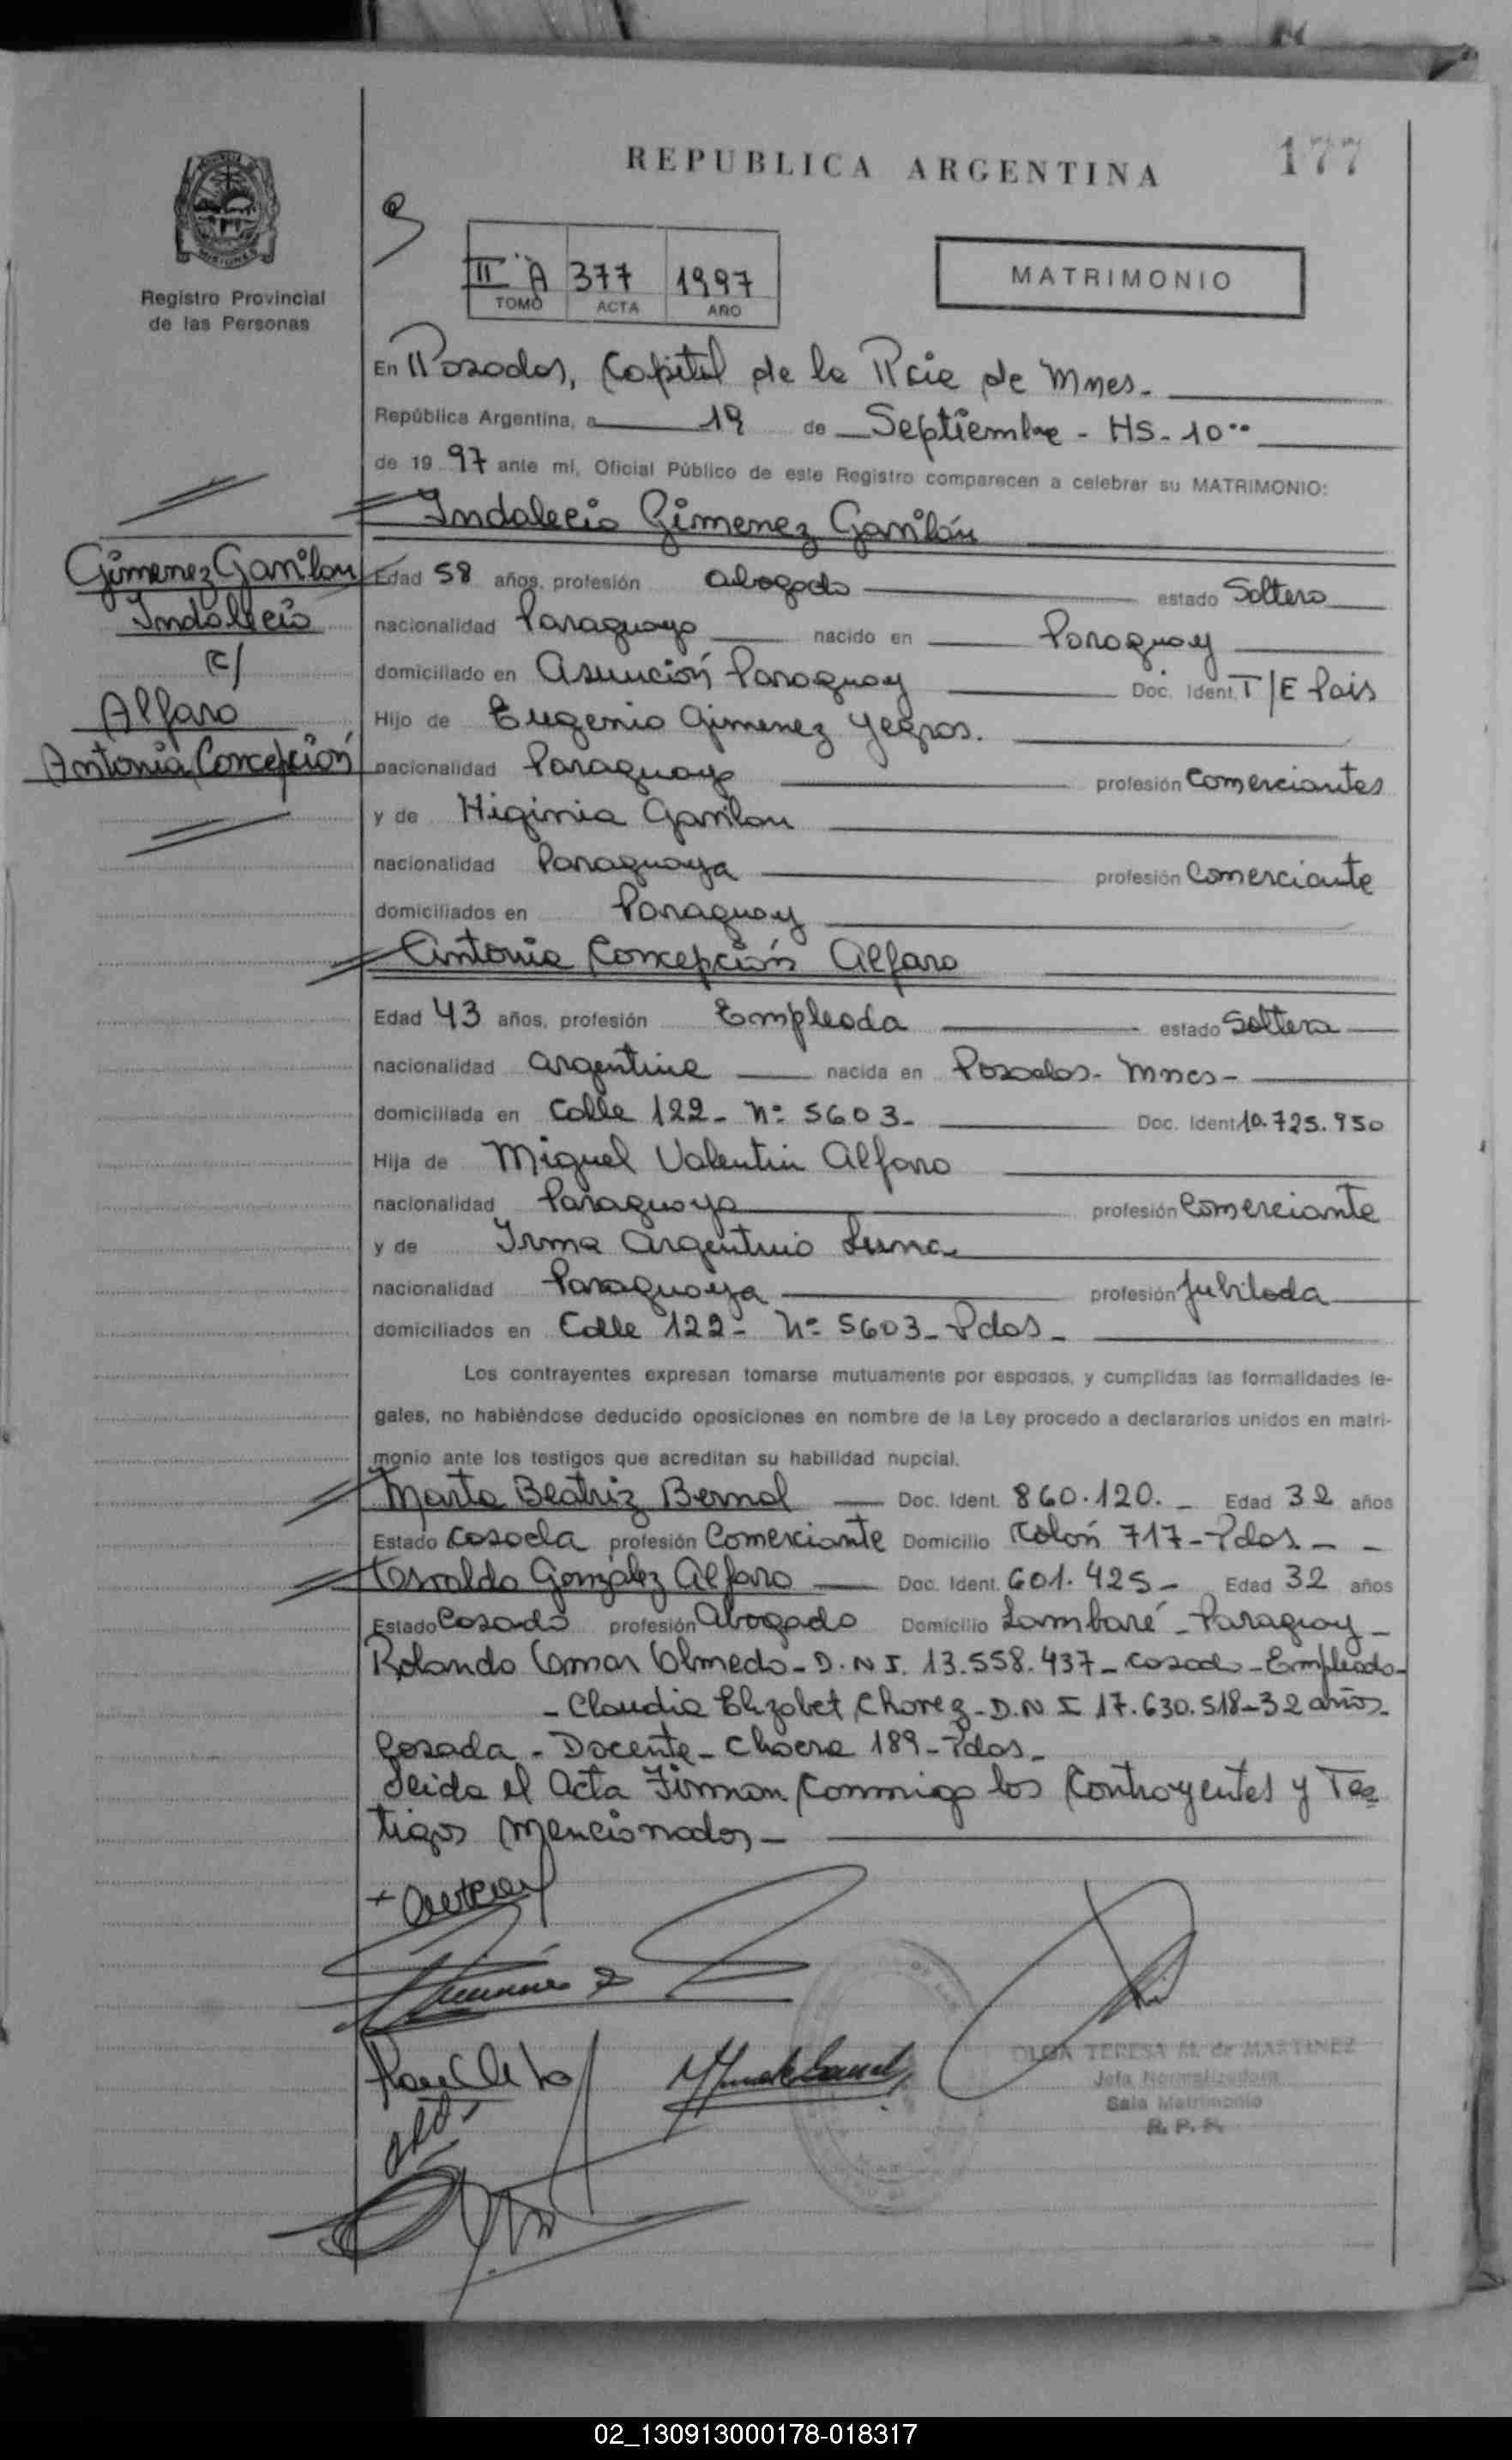 REPUBLICA ARGENTINA
177
MISIONES
Registro Provincial
de las Personas
II "A" 377 1997
TOMO ACTA AÑO
MATRIMONIO
En Posadas, Capital de la Pcia de Mnes.
República Argentina, a 19 de Septiembre - HS. 10°°
de 19 97 ante mí, Oficial Público de este Registro comparecen a celebrar su MATRIMONIO:
Indalecio Gimenez Gavilán
Gimenez Gavilan
Indalecio
c/
Alfaro
Antonia Concepción
Edad 58 años, profesión abogado estado Soltero
nacionalidad Paraguayo nacido en Paraguay
domiciliado en Asunción Paraguay Doc. Ident. T/E Pais
Hijo de Eugenio Gimenez Yegros.
nacionalidad Paraguayo profesión Comerciantes
y de Higinia Gavilan
nacionalidad Paraguaya profesión Comerciante
domiciliados en Paraguay
Antonia Concepción Alfaro
Edad 43 años, profesión Empleada estado Soltera
nacionalidad argentina nacida en Posadas - Mnes -
domiciliada en Calle 122 - Nº 5603 - Doc. Ident. 10.725.950
Hija de Miguel Valentin Alfaro
nacionalidad Paraguayo profesión Comerciante
y de Irma Argentina Luna
nacionalidad Paraguaya profesión Jubilada
domiciliados en Calle 122 - Nº 5603 - Pdas -
Los contrayentes expresan tomarse mutuamente por esposos, y cumplidas las formalidades le-
gales, no habiéndose deducido oposiciones en nombre de la Ley procedo a declararlos unidos en matri-
monio ante los testigos que acreditan su habilidad nupcial.
Marta Beatriz Bernal Doc. Ident. 860.120. - Edad 32 años
Estado casada profesión Comerciante Domicilio Colón 717 - Pdas - -
Osvaldo González Alfaro Doc. Ident. 601.425 - Edad 32 años
Estado Casado profesión Abogado Domicilio Lambaré - Paraguay -
Rolando Omar Olmedo - D.N.I. 13.558.437 - casado - Empleado -
- Claudia Elizabet Chavez - D.N.I 17.630.518 - 32 años -
Casada - Docente - Chacra 189 - Pdas -
Leida el Acta Firman Conmigo los Contrayentes y Tes
tigos mencionados -
OLGA TERESA M. de MARTINEZ
Jefa Normalizadora
Sala Matrimonio
R. P. P.
02_130913000178-018317